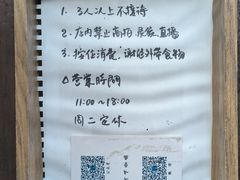 1. 3人以上不接待
2. 店内禁止商拍、录像、直播
3. 按位消费，谢绝外带食物
△营业时间
11:00~18:00
周二定休